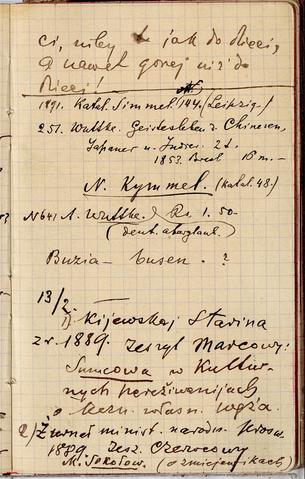 ci, niby to jak do dzieci,
a nawet gorzej niż do
dzieci!
1891. Katal. Simmel (144. Leipzig.)
251. Wuttke. Geistesleben d. Chinesen,
Japaner u. Inder. 2 t.
1853. Bresl 15 m.—
N. Kymmel. (katal. 48.)
N 641 A. Wuttke. Rs. 1.50.
(deut. aberglaub.
Buzia – busen. ?
13/2.
1) Kijewskaj Starina
z r. 1889. zeszyt Marcowy:
Sumcowa w Kultur-
nych pereżiwanijach
o kezn. własn. węża.
2) Żurnał minist. narodn. prosw.
1889 zesz. Czerwcowy
M. Sokołow. (o zmiejewikach)